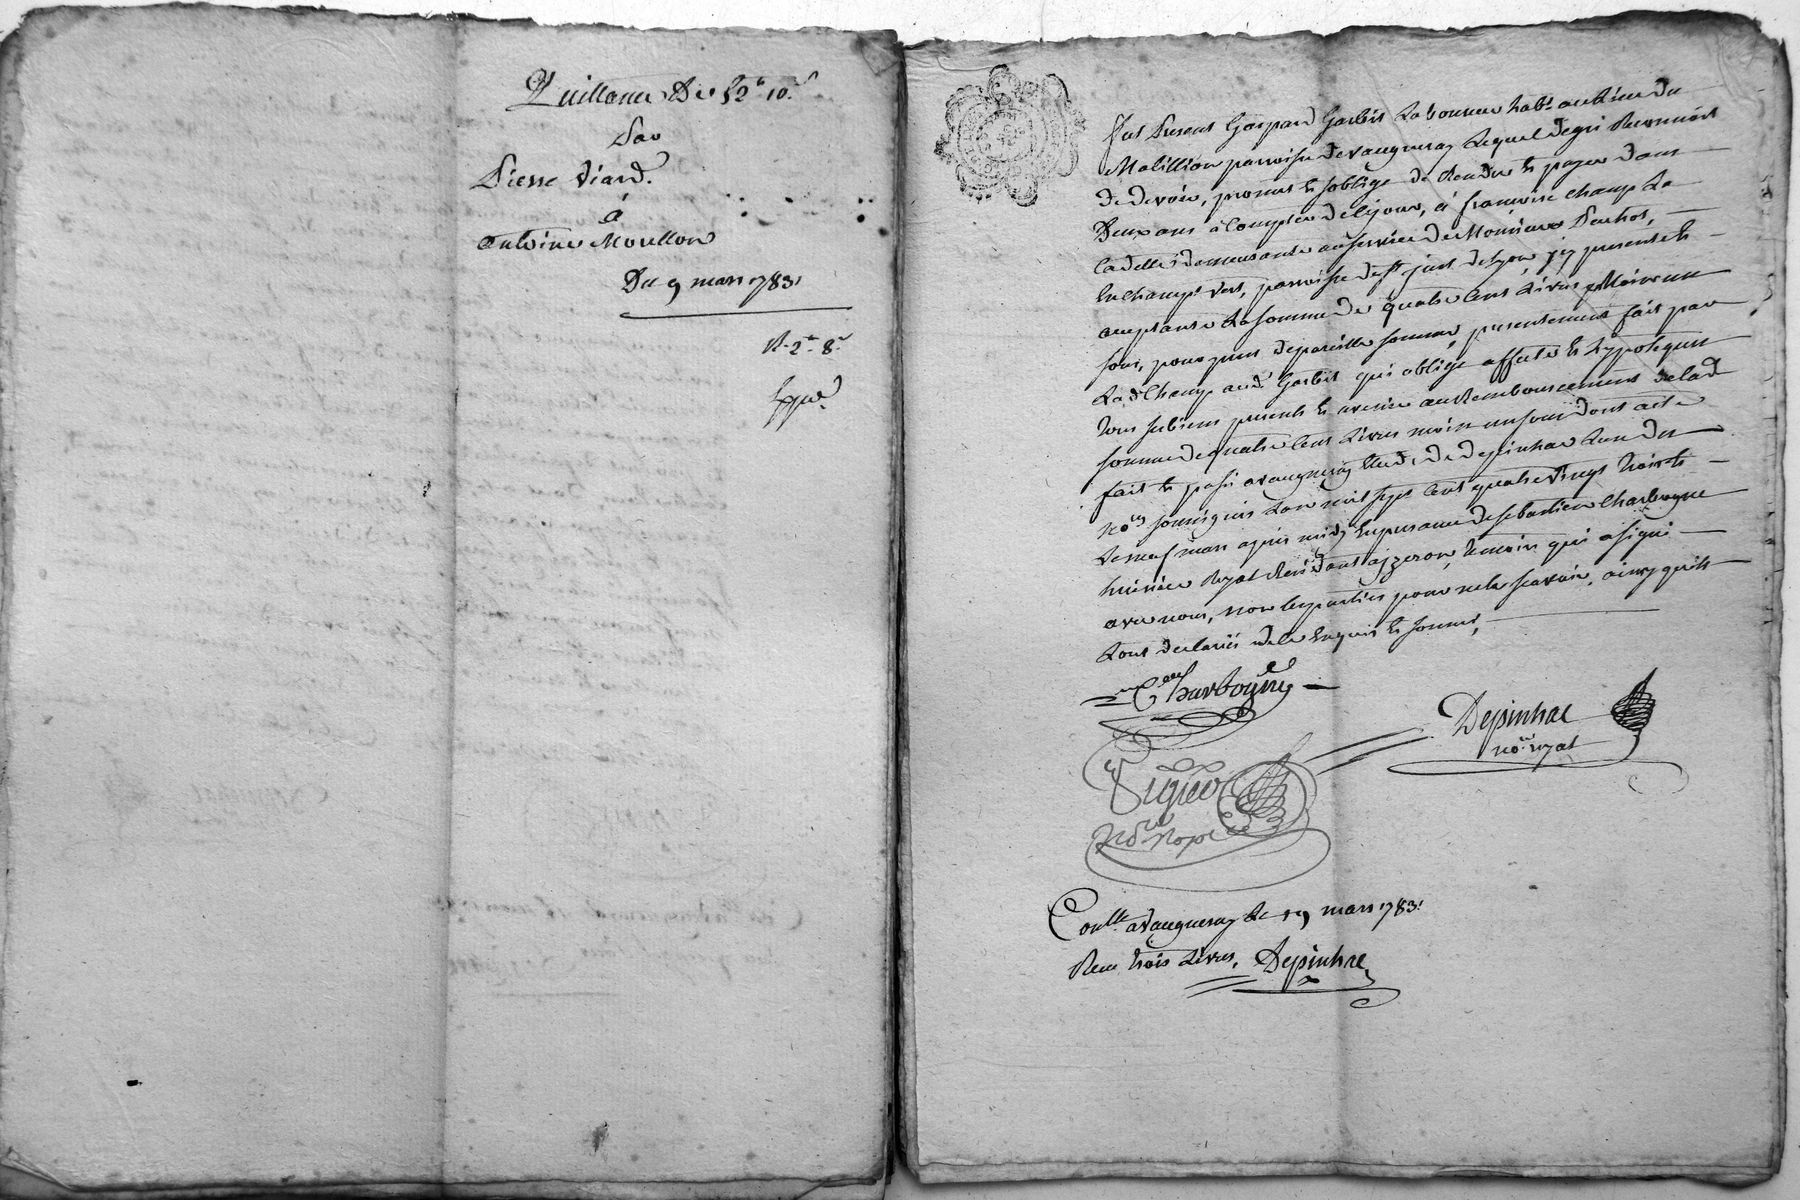 Quittance De 52ᵗ 10ˢ
Par
Pierre Viard.
à
antoine Morellon
Du 9 mars 1783
R. 2ᵗ 8ˢ
Expᵉᵈ
fut Present Gaspard Garbit Laboureur habᵗ au Lieu du
Malillion parroisse de vaugneray Lequel degré Reconnoit
de devoir, promet et soblige de Rendre et payer dans
Deux ans à Compter de Cejour, à francoise Champ La
Cadette demeurante au service de Monsieur
En Champt vert, parroisse de sᵗ just de Lyon, icy presente et
acceptante La somme de quatre Cent Livres Moins un
sou, pour prest de pareille somme, presentement fait par
Lad. Champ aud. Garbit qui oblige affecte et hypoteque
tous ses biens presents et avenir au Remboursement de lad
somme de quatre Cent Livres moins un sou Dont acte
fait et passé avaugneray Etude De depinhac Lun des
Noʳᵉˢ soussignés Lan mil sept Cent quatre vingt trois et
Le neuf mars après midy En presence de sebastien Charbogne
huissier Royal Residant ajzeron, temoin qui a signé
avec nous, non les parties pour ne le scavoir, ainsy quils
Lont declarés de ce Enquis et sommés,
Charbogne
Depinhac
noʳᵉ royal
Noʳᵉ Royal
Conlle avaugneray Le 19 mars 1783
Reçu trois Livres, Depinhac